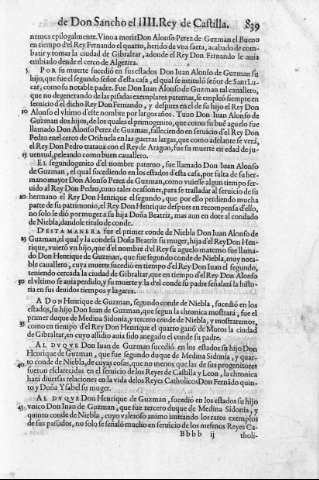 de Don Sancho el IIII. Rey de Castilla. 839
nunca epilogalmente. Vino a morir Don Alonso Perez de Guzman el Bueno
en tiempo d'el Rey Fernando el quarto, herido de vna saeta, acabado de com-
batir y tomar la ciudad de Gibraltar, adonde el Rey Don Fernando le auia
embiado desde el cerco de Algezira.
5 POR su muerte sucedió en sus estados Don Iuan Alonso de Guzman su
hijo, que fue el segundo señor d'esta casa, el qual se intituló señor de San Lu-
car, como su notable padre. Fue Don Iuan Alonso de Guzman tal cauallero,
que no degenerando de las passadas exemplares paternas, se empleó siempre en
seruicio d'el dicho Rey Don Fernando, y despues en el de su hijo el Rey Don
10 Alonso el vltimo d'este nombre por largos años. Tuuo Don Iuan Alonso de
Guzman dos hijos, de los quales el primogenito, que como su bué aguelo fue
llamado Don Alonso Perez de Guzman, falleciendo en seruicio d'el Rey Don
Pedro en el cerco de Orihuela en las guerras largas, que como adelante se verá,
el Rey Don Pedro trataua con el Rey de Aragon, fue su muerte en edad de ju-
15 uentud, peleando como buen cauallero.
EL segundogenito d'el nombre paterno, fue llamado Don Iuan Alonso
de Guzman, el qual sucediendo en los estados d'esta casa, por falta de su her-
mano mayor Don Alonso Perez de Guzman, como vuiesse algun tiempo ser-
uido al Rey Don Pedro, tuuo tales ocasiones, para se trasladar al seruicio de su
20 hermano el Rey Don Henrique el segundo, que por ello perdiendo mucha
parte de su patrimonio, el Rey Don Henrique despues en recompensa d'ello,
no solo le dió por muger a su hija Doña Beatriz, mas aun en dote al condado
de Niebla, dandole titulo de conde.
DESTA MANERA fue el primer conde de Niebla Don Iuan Alonso de
25 Guzman, el qual y la condesa Doña Beatriz su muger, hija d'el Rey Don Hen-
rique, vuieron vn hijo, que d'el nombre d'el Rey su aguelo materno fue llama-
do Don Henrique de Guzman, que fue segundo conde de Niebla, muy nota-
ble cauallero, cuya muerte sucedió en tiempo d'el Rey Don Iuan el segundo,
teniendo cercada la ciudad de Gibraltar, que en tiempo d'el Rey Don Alonso
30 el vltimo se auia perdido, y su muerte y la d'el conde su padre señalará la histo-
ria en sus deuidos tiempos y lugares.
A DON Henrique de Guzman, segundo conde de Niebla, sucedió en los
estados, su hijo Don Iuan de Guzman, que segun la chronica mostrará, fue el
primer duque de Medina Sidonia, y tercero conde de Niebla, y mostraremos,
35 como en tiempo d'el Rey Don Henrique el quarto ganó de Moros la ciudad
de Gibraltar, en cuyo assidio auia sido anegado el conde su padre.
AL DVQVE Don Iuan de Guzman sucedió en los estados su hijo Don
Henrique de Guzman, que fue segundo duque de Medina Sidonia, y quar-
to conde de Niebla, de cuyas cosas, que no menos que las de sus progenitores
40 fueron esclarecidas en el seruicio de los Reyes de Castilla y Leon, la chronica
hará diuersas relaciones en la vida de los Reyes Catholicos Don Fernádo quin-
to y Doña Ysabel su muger.
AL DVQVE Don Henrique de Guzman, sucedió en los estados su hijo
vnico Don Iuan de Guzman, que fue tercero duque de Medina Sidonia, y
45 quinto conde de Niebla, cuyo valeroso animo imitando los raros exemplos
de sus passados, no solo se señaló mucho en seruicio de los mesmos Reyes Ca-
Bbbb ij tholi-